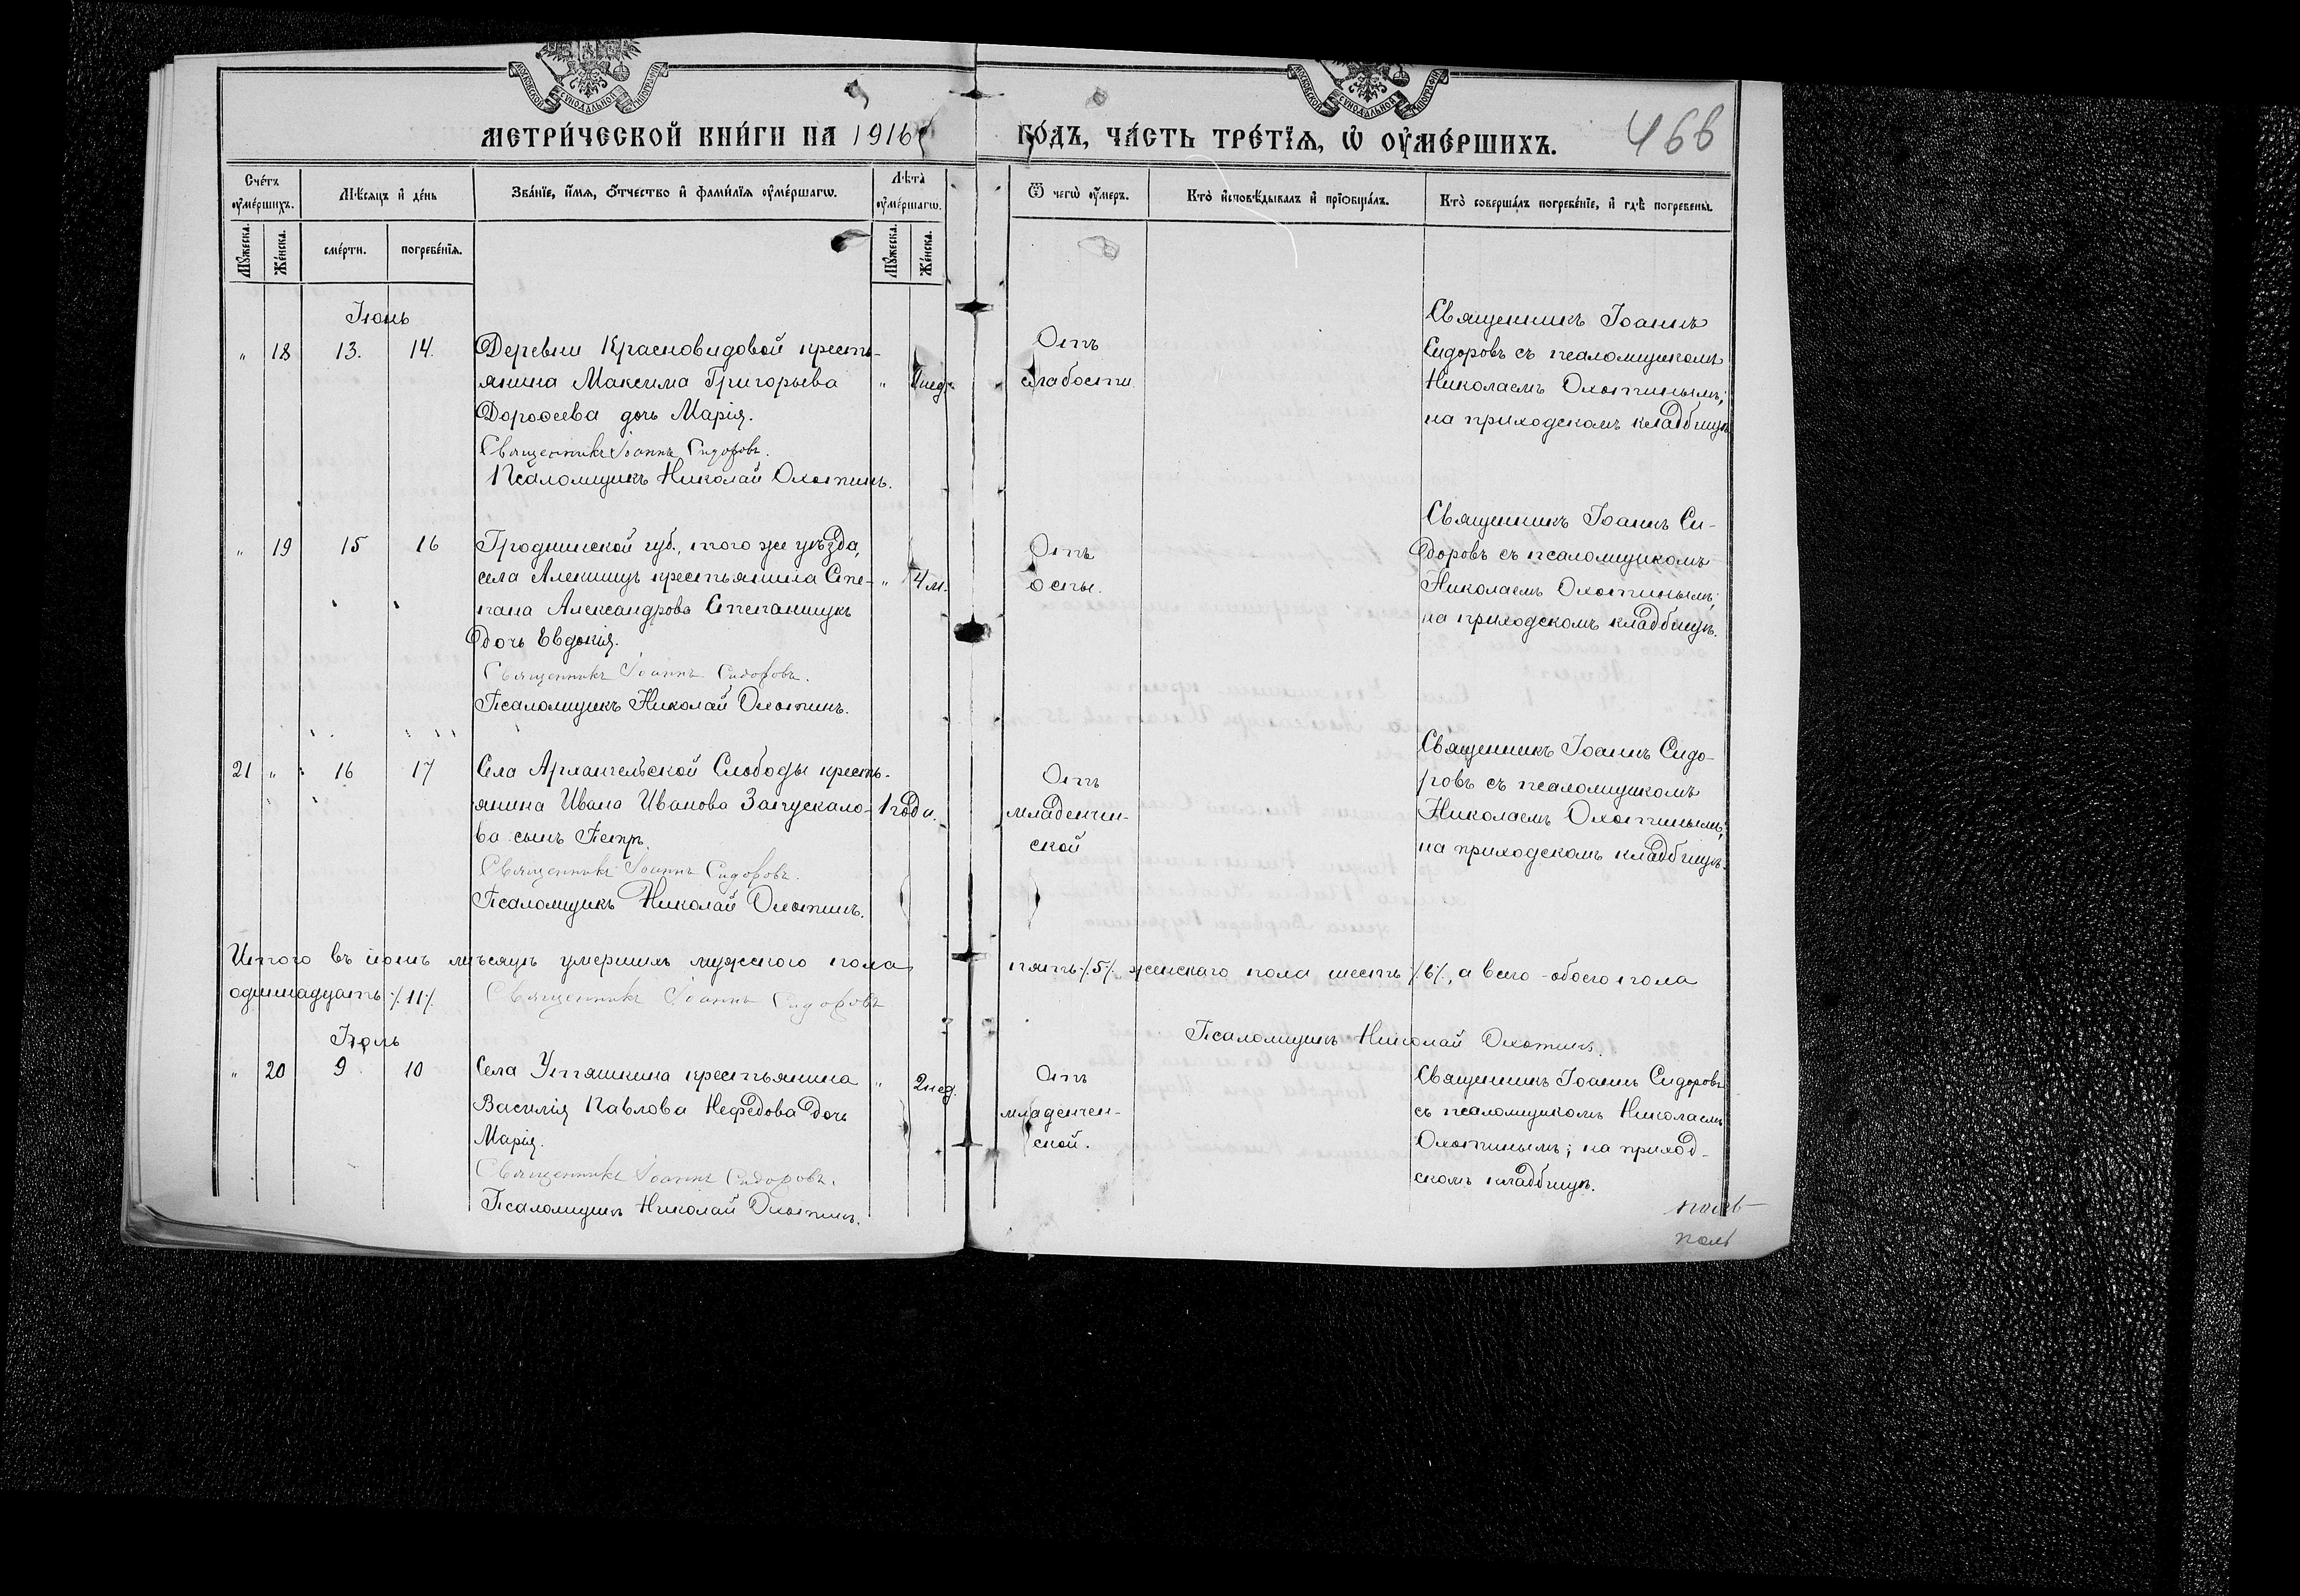 МОСКОВСКОЙ СѴНОДАЛЬНОЙ ТИПОГРАФІИ
МОСКОВСКОЙ СѴНОДАЛЬНОЙ ТИПОГРАФІИ
МЕТРИ́ЧЕСКОЙ КНИ́ГИ НА 1916
ГО́ДЪ, ЧА́СТЬ ТРЕ́ТЇѦ, Ѡ҆ ОУ҆МЕ́РШИХЪ.
466
Сче́тъ оу҆ме́ршихъ.
Мѣ́сяцъ и҆ де́нь
Зва́нїе, и҆́мѧ, ѻ҆́тчество и҆ фами́лїѧ оу҆ме́ршагѡ.
Лѣ́та оу҆ме́ршагѡ.
Ѿ чегѡ̀ оу҆́меръ.
Кто̀ и҆сповѣ́дывалъ и҆ прїѡбща́лъ.
Кто̀ соверша́лъ погребе́нїе, и҆ гдѣ̀ погребены̀.
Мꙋ́жеска.
Же́нска.
сме́рти.
погребе́нїѧ.
Мꙋ́жеска.
Же́нска.
Іюнь
" 18 13. 14.
Деревни Красновидовой кресть-
янина Максима Григорьева
Дороѳеева дочь Марія.
Священникъ Іоаннъ Сидоровъ.
Псаломщикъ Николай Охотинъ.
" нед.
Отъ
слабости
Священникъ Іоаннъ
Сидоровъ съ псаломщикомъ
Николаемъ Охотинымъ;
на приходскомъ кладбищѣ
" 19 15 16
Гродненской губ., того же уѣзда,
села Алекшицъ крестьянина Сте-
пана Александрова Степанищукъ
дочь Евдокія.
Священникъ Іоаннъ Сидоровъ.
Псаломщикъ Николай Охотинъ.
" 4 м.
Отъ
оспы.
Священникъ Іоаннъ Си-
доровъ съ псаломщикомъ
Николаемъ Охотинымъ;
на приходскомъ кладбищѣ.
21 " 16 17
Села Архангельской Слободы кресть-
янина Ивана Иванова Запускало-
ва сынъ Петръ.
Священникъ Іоаннъ Сидоровъ.
Псаломщикъ Николай Охотинъ.
1 года.
Отъ
младенчен-
ской
Священникъ Іоаннъ Сидо-
ровъ съ псаломщикомъ
Николаемъ Охотинымъ;
на приходскомъ кладбищѣ.
Итого въ іюнѣ мѣсяцѣ умершихъ мужского пола
пять /.5/. женскаго пола шесть /.6/., а всего обоего пола
одиннадцать /.11/. Священникъ Іоаннъ Сидоровъ
Псаломщикъ Николай Охотинъ.
Іюль
" 20 9 10
Села Утяшкина крестьянина
Василія Павлова Нефедова дочь
Марія.
Священникъ Іоаннъ Сидоровъ.
Псаломщикъ Николай Охотинъ.
" 2 нед.
Отъ
младенчен-
ской.
Священникъ Іоаннъ Сидоровъ
съ псаломщикомъ Николаемъ
Охотинымъ; на приход-
скомъ кладбищѣ.